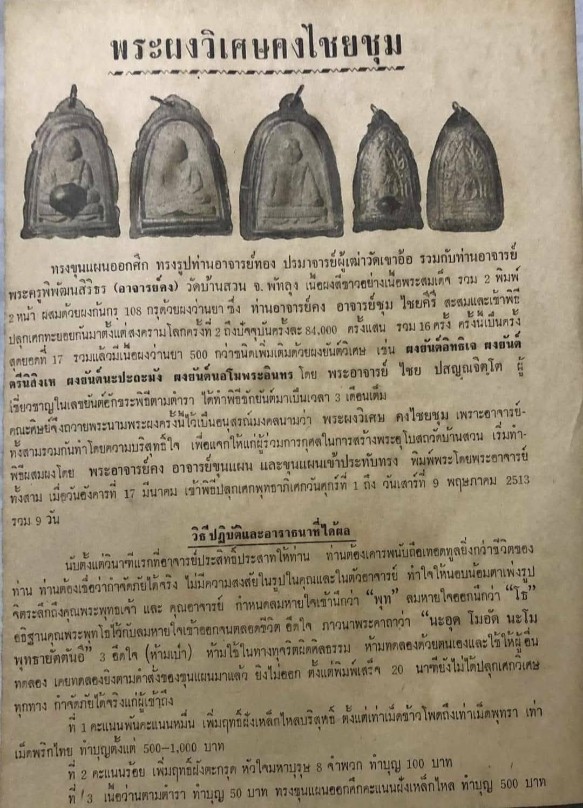 พระผงวิเศษคงไชยชุม
ทรงขุนแผนออกศึก ทรงรูปท่านอาจารย์ทอง ปรมาจารย์ผู้เฒ่าวัดเขาอ้อ รวมกับท่านอาจารย์
พระครูพิพัฒน์สิริธร (อาจารย์คง) วัดบ้านสวน จ. พัทลุง เนื้อผงสีขาวอย่างเนื้อพระสมเด็จ รวม 2 พิมพ์
2 หน้า ผสมด้วยผงกันกรุ 108 กรุด้วยผงว่านยา ซึ่ง ท่านอาจารย์คง อาจารย์ชุม ไชยคีรี สะสมและเข้าพิธี
ปลุกเศกทะยอยกันมาตั้งแต่สงครามโลกครั้งที่ 2 ถึงปัจจุบันครั้งละ 84,000 ครั้งแสน รวม 16 ครั้ง ครั้งนี้เป็นครั้ง
สุดยอดที่ 17 รวมแล้วมีเนื้อผงว่านยา 500 กว่าชนิดเพิ่มเติมด้วยผงยันต์วิเศษ เช่น ผงยันต์อิทธิเจ ผงยันต์
ตรีนิสิงเห ผงยันต์นะปะถะมัง ผงยันต์นอโมพระอินทร โดย พระอาจารย์ ไชย ปสญฺณจิตฺโต ผู้
เชี่ยวชาญในเลขยันต์อักขระพิธีตามตำรา ได้ทำพิธีชักยันต์มาเป็นเวลา 3 เดือนเต็ม
คณะศิษย์จึงถวายพระนามพระผงครั้งนี้ไว้เป็นอนุสรณ์มงคลนามว่า พระผงวิเศษ คงไชยชุม เพราะอาจารย์-
ทั้งสามรวมกันทำโดยความบริสุทธิ์ใจ เพื่อแจกให้แก่ผู้ร่วมการกุศลในการสร้างพระอุโบสถวัดบ้านสวน เริ่มทำ-
พิธีผสมผงโดย พระอาจารย์คง อาจารย์ขุนแผน และขุนแผนเข้าประทับทรง พิมพ์พระโดยพระอาจารย์
ทั้งสาม เมื่อวันอังคารที่ 17 มีนาคม เข้าพิธีปลุกเศกพุทธาภิเศกวันศุกร์ที่ 1 ถึง วันเสาร์ที่ 9 พฤษภาคม 2513
รวม 9 วัน
วิธีปฏิบัติและอาราธนาที่ได้ผล
นับตั้งแต่วินาฑีแรกที่อาจารย์ประสิทธิ์ประสาทให้ท่าน ท่านต้องเคารพนับถือเทอดทูลยิ่งกว่าชีวิตของ
ท่าน ท่านต้องเชื่อว่ากำจัดภัยได้จริง ไม่มีความสงสัยในรูปในคุณและในตัวอาจารย์ ทำใจให้นอบน้อมตาเพ่งรูป
จิตระลึกถึงคุณพระพุทธเจ้า และ คุณอาจารย์ กำหนดลมหายใจเข้านึกว่า “พุท” ลมหายใจออกนึกว่า “โธ”
อธิฐานคุณพระพุทโธไว้กับลมหายใจเข้าออกจนตลอดชีวิต อึดใจ ภาวนาพระคาถาว่า “นะอุด โมอัด นะโม
พุทธายัดตันอึ” 3 อึดใจ (ห้ามเป่า) ห้ามใช้ในทางทุจริตผิดศีลธรรม ห้ามทดลองด้วยตนเองและใช้ให้ผู้อื่น
ทดลอง เคยทดลองยิงตามคำสั่งของขุนแผนมาแล้ว ยิงไม่ออก ตั้งแต่พิมพ์เสร็จ 20 นาฑียังไม่ได้ปลุกเศกวิเศษ
ทุกทาง กำจัดภัยได้จริงแก่ผู้เข้าถึง
ที่ 1 คะแนนพันคะแนนหมื่น เพิ่มฤทธิ์ฝังเหล็กไหลบริสุทธิ์ ตั้งแต่เท่าเม็ดข้าวโพดถึงเท่าเม็ดพุทรา เท่า
เม็ดพริกไทย ทำบุญตั้งแต่ 500-1,000 บาท
ที่ 2 คะแนนร้อย เพิ่มฤทธิ์ฝังตะกรุด หัวใจมหาบุรุษ 8 จำพวก ทำบุญ 100 บาท
ที่ 3 เนื้อว่านตามตำรา ทำบุญ 50 บาท ทรงขุนแผนออกศึกคะแนนฝังเหล็กไหล ทำบุญ 500 บาท